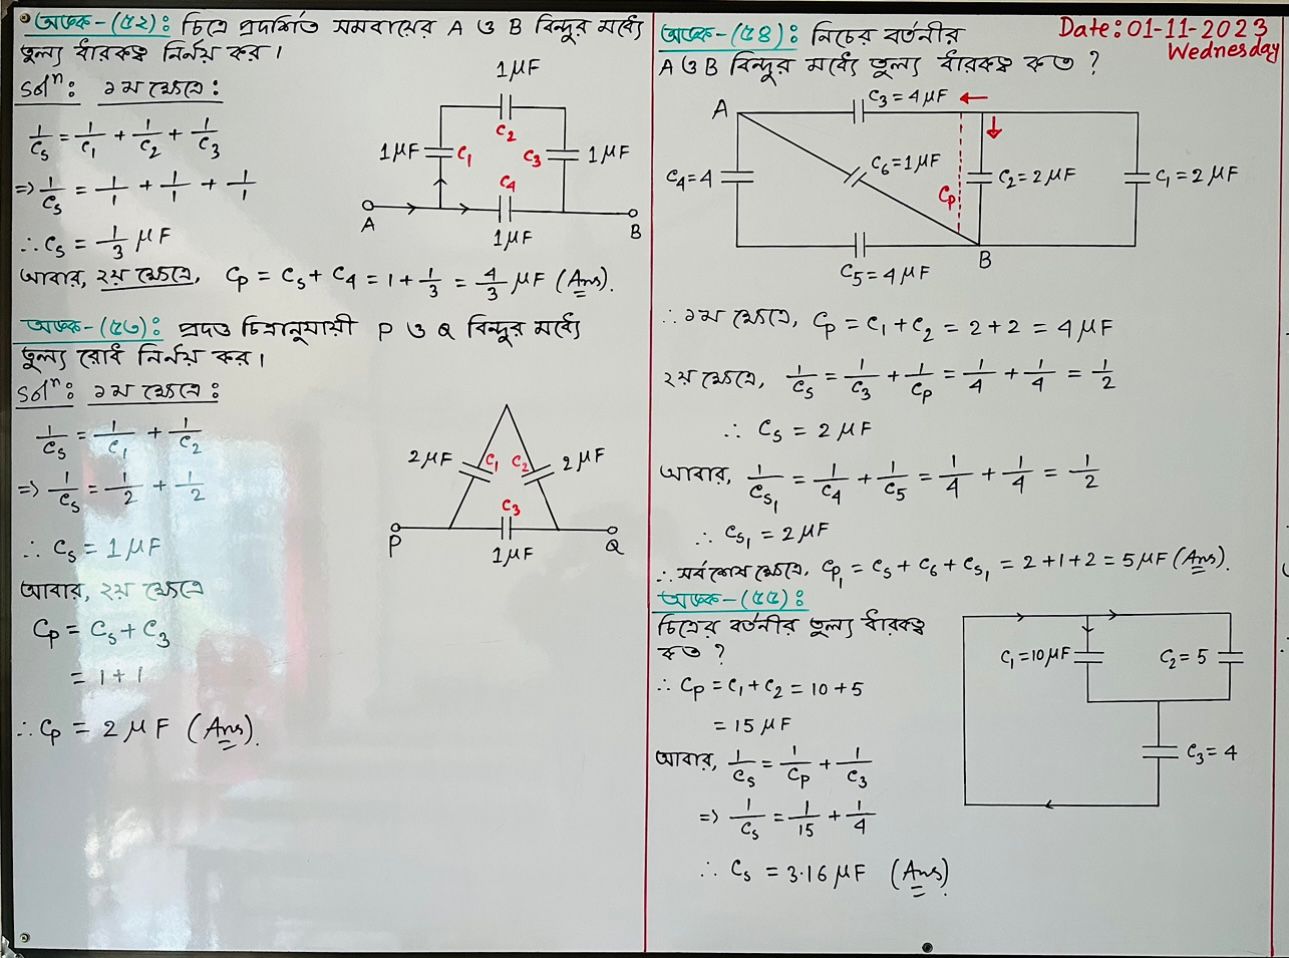 অঙ্ক-(৫২): চিত্রে প্রদর্শিত সমবায়ের A ও B বিন্দুর মধ্যে
তুল্য ধারকত্ব নির্নয় কর।
Solⁿ: ১ম ক্ষেত্রে:
1/Cs = 1/C1 + 1/C2 + 1/C3
=> 1/Cs = 1/1 + 1/1 + 1/1
∴ Cs = 1/3 μF
আবার, ২য় ক্ষেত্রে, Cp = Cs + C4 = 1 + 1/3 = 4/3 μF (Ans).
1 μF
C2
1 μF C1 C3 1 μF
C4
A B
1 μF
অঙ্ক-(৫৩): প্রদত্ত চিত্রানুযায়ী P ও Q বিন্দুর মধ্যে
তুল্য রোধ নির্নয় কর।
Solⁿ: ১ম ক্ষেত্রে:
1/Cs = 1/C1 + 1/C2
=> 1/Cs = 1/2 + 1/2
∴ Cs = 1 μF
আবার, ২য় ক্ষেত্রে
Cp = Cs + C3
= 1 + 1
∴ Cp = 2 μF (Ans).
2 μF C1 C2 2 μF
C3
P Q
1 μF
Date: 01-11-2023
Wednesday
অঙ্ক-(৫৪): নিচের বর্তনীর
A ও B বিন্দুর মধ্যে তুল্য ধারকত্ব কত ?
A C3 = 4 μF
C6 = 1 μF
C4 = 4 Cp C2 = 2 μF C1 = 2 μF
B
C5 = 4 μF
∴ ১ম ক্ষেত্রে, Cp = C1 + C2 = 2 + 2 = 4 μF
২য় ক্ষেত্রে, 1/Cs = 1/C3 + 1/Cp = 1/4 + 1/4 = 1/2
∴ Cs = 2 μF
আবার, 1/Cs1 = 1/C4 + 1/C5 = 1/4 + 1/4 = 1/2
∴ Cs1 = 2 μF
∴ সর্বশেষ ক্ষেত্রে, Cp1 = Cs + C6 + Cs1 = 2 + 1 + 2 = 5 μF (Ans).
অঙ্ক-(৫৫):
চিত্রের বর্তনীর তুল্য ধারকত্ব
কত ?
∴ Cp = C1 + C2 = 10 + 5
= 15 μF
আবার, 1/Cs = 1/Cp + 1/C3
=> 1/Cs = 1/15 + 1/4
∴ Cs = 3.16 μF (Ans).
C1 = 10 μF C2 = 5
C3 = 4